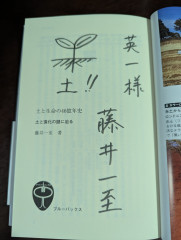 英一様
藤井一至
土!!
土と生命の46億年史
土と進化の謎に迫る
藤井一至 著
ブルーバックス